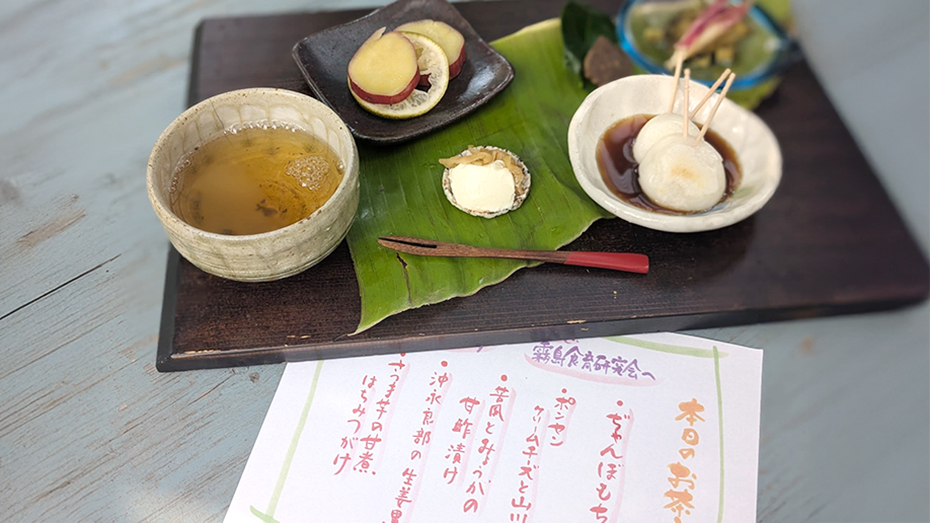 霧島食育研究会へ
本日のお茶
・ぢゃんぼもち
・ポンセン
クリームチーズと山川
・苦瓜とみょうがの
甘酢漬け
・沖永良部の生姜黒
・さつま芋の甘煮
はちみつがけ